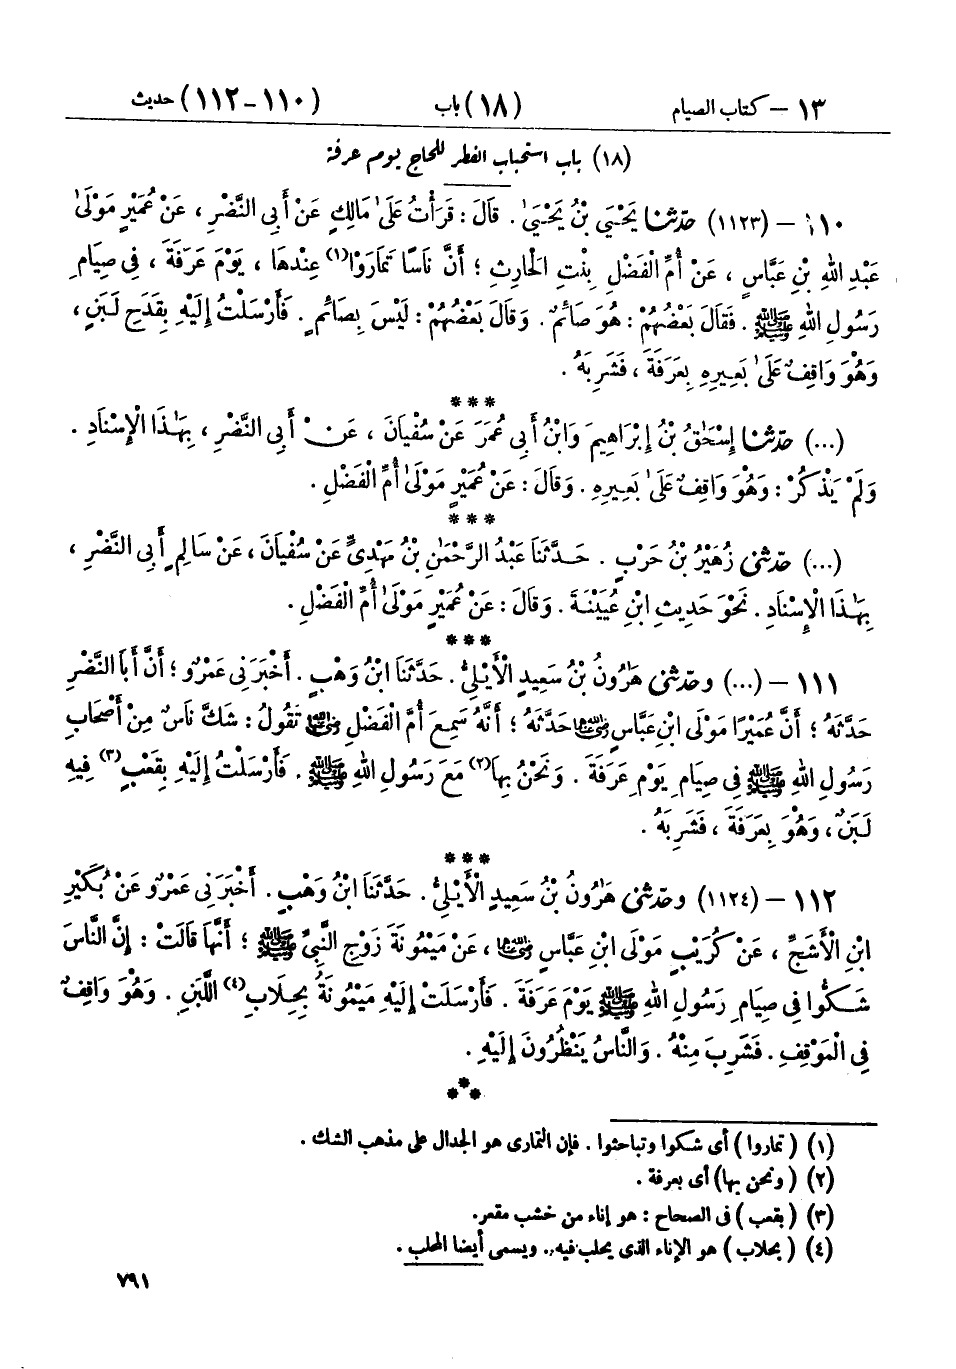 ١٣ – كتاب الصيام (١٨) باب (١١٠ – ١١٢) حديث
(١٨) باب استحباب الفطر للحاج يوم عرفة
١١٠ – (١١٢٣) حَدَّثَنَا يَحْيَىٰ بْنُ يَحْيَىٰ . قَالَ : قَرَأْتُ عَلَىٰ مَالِكٍ عَنْ أَبِي النَّضْرِ ، عَنْ عُمَيْرٍ مَوْلَىٰ
عَبْدِ اللهِ بْنِ عَبَّاسٍ ، عَنْ أُمِّ الْفَضْلِ بِنْتِ الْحَارِثِ ؛ أَنَّ نَاسًا تَمَارَوْا(١) عِنْدَهَا ، يَوْمَ عَرَفَةَ ، فِي صِيَامِ
رَسُولِ اللهِ ﷺ . فَقَالَ بَعْضُهُمْ : هُوَ صَائِمٌ . وَقَالَ بَعْضُهُمْ : لَيْسَ بِصَائِمٍ . فَأَرْسَلْتُ إِلَيْهِ بِقَدَحِ لَبَنٍ ،
وَهُوَ وَاقِفٌ عَلَىٰ بَعِيرِهِ بِعَرَفَةَ ، فَشَرِبَهُ .
***
(...) حَدَّثَنَا إِسْحَٰقُ بْنُ إِبْرَاهِيمَ وَابْنُ أَبِي عُمَرَ عَنْ سُفْيَانَ ، عَنْ أَبِي النَّضْرِ ، بِهَٰذَا الْإِسْنَادِ .
وَلَمْ يَذْكُرْ : وَهُوَ وَاقِفٌ عَلَىٰ بَعِيرِهِ . وَقَالَ : عَنْ عُمَيْرٍ مَوْلَىٰ أُمِّ الْفَضْلِ .
***
(...) حَدَّثَنِي زُهَيْرُ بْنُ حَرْبٍ . حَدَّثَنَا عَبْدُ الرَّحْمَٰنِ بْنُ مَهْدِيٍّ عَنْ سُفْيَانَ ، عَنْ سَالِمٍ أَبِي النَّضْرِ ،
بِهَٰذَا الْإِسْنَادِ . نَحْوَ حَدِيثِ ابْنِ عُيَيْنَةَ . وَقَالَ : عَنْ عُمَيْرٍ مَوْلَىٰ أُمِّ الْفَضْلِ .
***
١١١ – (...) وحَدَّثَنِي هَٰرُونُ بْنُ سَعِيدٍ الْأَيْلِيُّ . حَدَّثَنَا ابْنُ وَهْبٍ . أَخْبَرَنِي عَمْرٌو ؛ أَنَّ أَبَا النَّضْرِ
حَدَّثَهُ ؛ أَنَّ عُمَيْرًا مَوْلَى ابْنِ عَبَّاسٍ رضي الله عنهما حَدَّثَهُ ؛ أَنَّهُ سَمِعَ أُمَّ الْفَضْلِ رضي الله عنها تَقُولُ : شَكَّ نَاسٌ مِنْ أَصْحَابِ
رَسُولِ اللهِ ﷺ فِي صِيَامِ يَوْمِ عَرَفَةَ . وَنَحْنُ بِهَا(٢) مَعَ رَسُولِ اللهِ ﷺ . فَأَرْسَلْتُ إِلَيْهِ بِقَعْبٍ(٣) فِيهِ
لَبَنٌ ، وَهُوَ بِعَرَفَةَ ، فَشَرِبَهُ .
***
١١٢ – (١١٢٤) وحَدَّثَنِي هَٰرُونُ بْنُ سَعِيدٍ الْأَيْلِيُّ . حَدَّثَنَا ابْنُ وَهْبٍ . أَخْبَرَنِي عَمْرٌو عَنْ بُكَيْرِ
ابْنِ الْأَشَجِّ ، عَنْ كُرَيْبٍ مَوْلَى ابْنِ عَبَّاسٍ رضي الله عنهما ، عَنْ مَيْمُونَةَ زَوْجِ النَّبِيِّ ﷺ ؛ أَنَّهَا قَالَتْ : إِنَّ النَّاسَ
شَكُّوا فِي صِيَامِ رَسُولِ اللهِ ﷺ يَوْمَ عَرَفَةَ . فَأَرْسَلَتْ إِلَيْهِ مَيْمُونَةُ بِحِلَابِ(٤) اللَّبَنِ . وَهُوَ وَاقِفٌ
فِي الْمَوْقِفِ . فَشَرِبَ مِنْهُ . وَالنَّاسُ يَنْظُرُونَ إِلَيْهِ .
***
(١) ( تماروا ) أى شكوا وتباحثوا . فإن التمارى هو الجدال على مذهب الشك .
(٢) ( ونحن بها ) أى بعرفة .
(٣) ( بقعب ) فى الصحاح : هو إناء من خشب مقعر.
(٤) ( بحلاب ) هو الإناء الذى يحلب فيه . ويسمى أيضا المحلب .
٧٩١